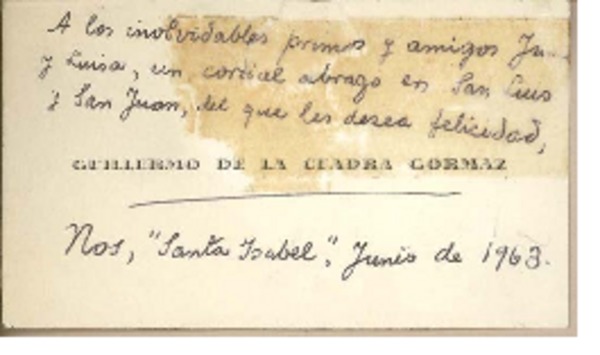 A los inolvidables primos y amigos Ju
y Luisa, un cordial abrazo en San Luis
y San Juan, del que les desea felicidad,
GUILLERMO DE LA CUADRA GORMAZ
Nos, "Santa Isabel", Junio de 1963.